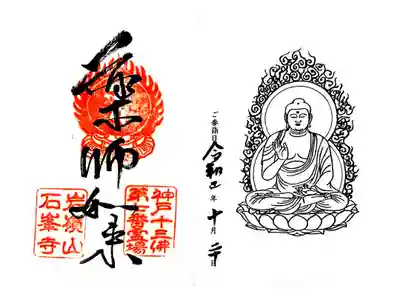 薬師如来
神戸十三佛
番霊場
岩嶺山
石峯寺
ご参詣日 令和 年 十月 日